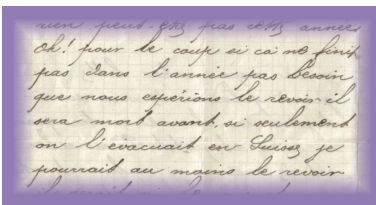 rien peut-etre pas cette année
Oh! pour le coup si ca ne finit
pas dans l'année pas besoin
que nous espérions le revoir il
sera mort avant, si seulement
on l'évacuait en Suisse je
pourrait au moins le revoir